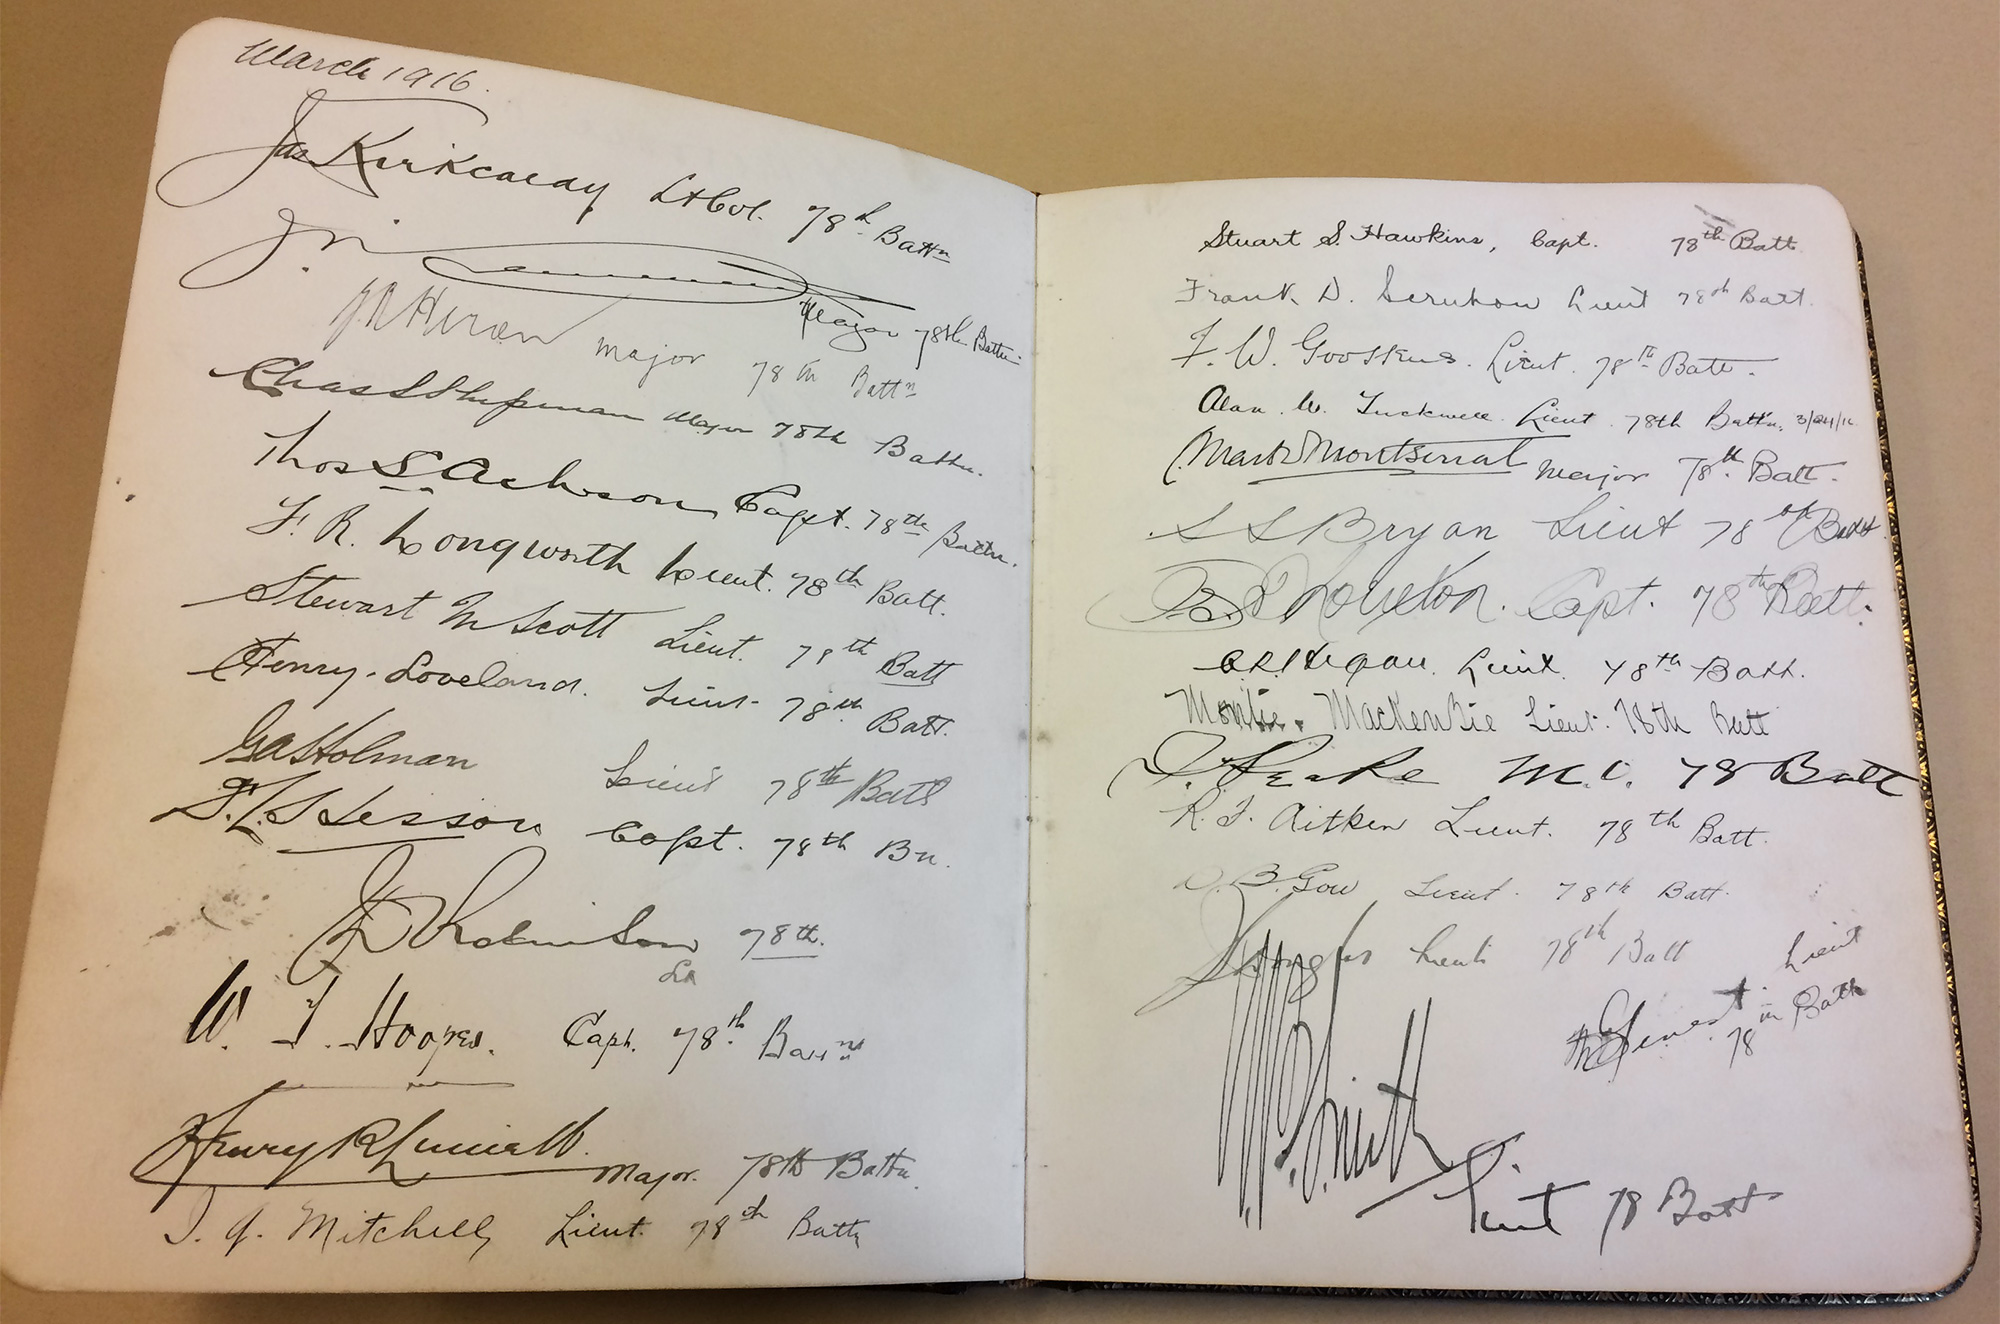 March 1916.
Jas Kirkcaldy Lt Col. 78th Battn
J. N. Major 78th Battn
Major 78th Battn
Chas S Shipman Major 78th Battn.
Thos S. Acheson Capt. 78th Battn.
F. R. Longworth Lieut. 78th Batt.
Stewart M Scott Lieut. 78th Batt
Henry Loveland. Lieut. 78th Batt.
Ga Holman Lieut 78th Batt
Sisson Capt. 78th Bn.
Robinson 78th.
W. F. Hooper. Capt. 78th Battn
Henry R Major. 78th Battn.
J. G. Mitchell Lieut. 78th Battn
Stuart S. Hawkins, Capt. 78th Batt.
Frank D. Lieut 78th Batt.
F. W. Lieut. 78th Batt.
Alan. W. Tuckwell. Lieut. 78th Battn. 3/24/16
Mark Montserrat Major 78th Batt.
S S Bryan Lieut 78th Batt
Capt. 78th Batt.
Lieut. 78th Batt.
Montie. MacKenzie Lieut. 78th Batt
Peake M.O. 78 Batt
R. F. Aitken Lieut. 78th Batt.
B. Gow Lieut. 78th Batt.
Lieut. 78th Batt
Lieut
78th Battn
Smith
Lieut 78 Batt